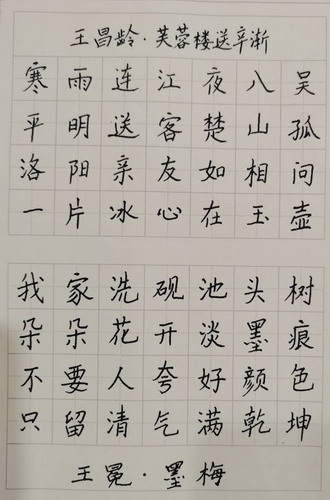 王昌龄·芙蓉楼送辛渐
寒雨连江夜八吴
平明送客楚山孤
洛阳亲友如相问
一片冰心在玉壶
我家洗砚池头树
朵朵花开淡墨痕
不要人夸好颜色
只留清气满乾坤
王冕·墨梅